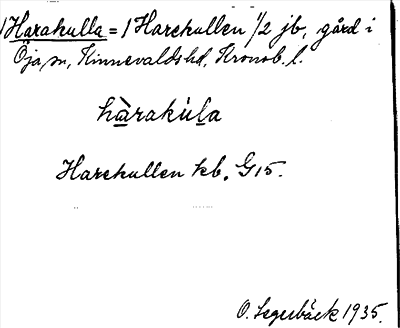 /Harakulla = /Harekullen 1/2 jb, gård i
Öja sn, Kinnevalds hd, Kronob. l.
hàrakùla
Harekullen kb. G15.
O. Segerbäck 1935.